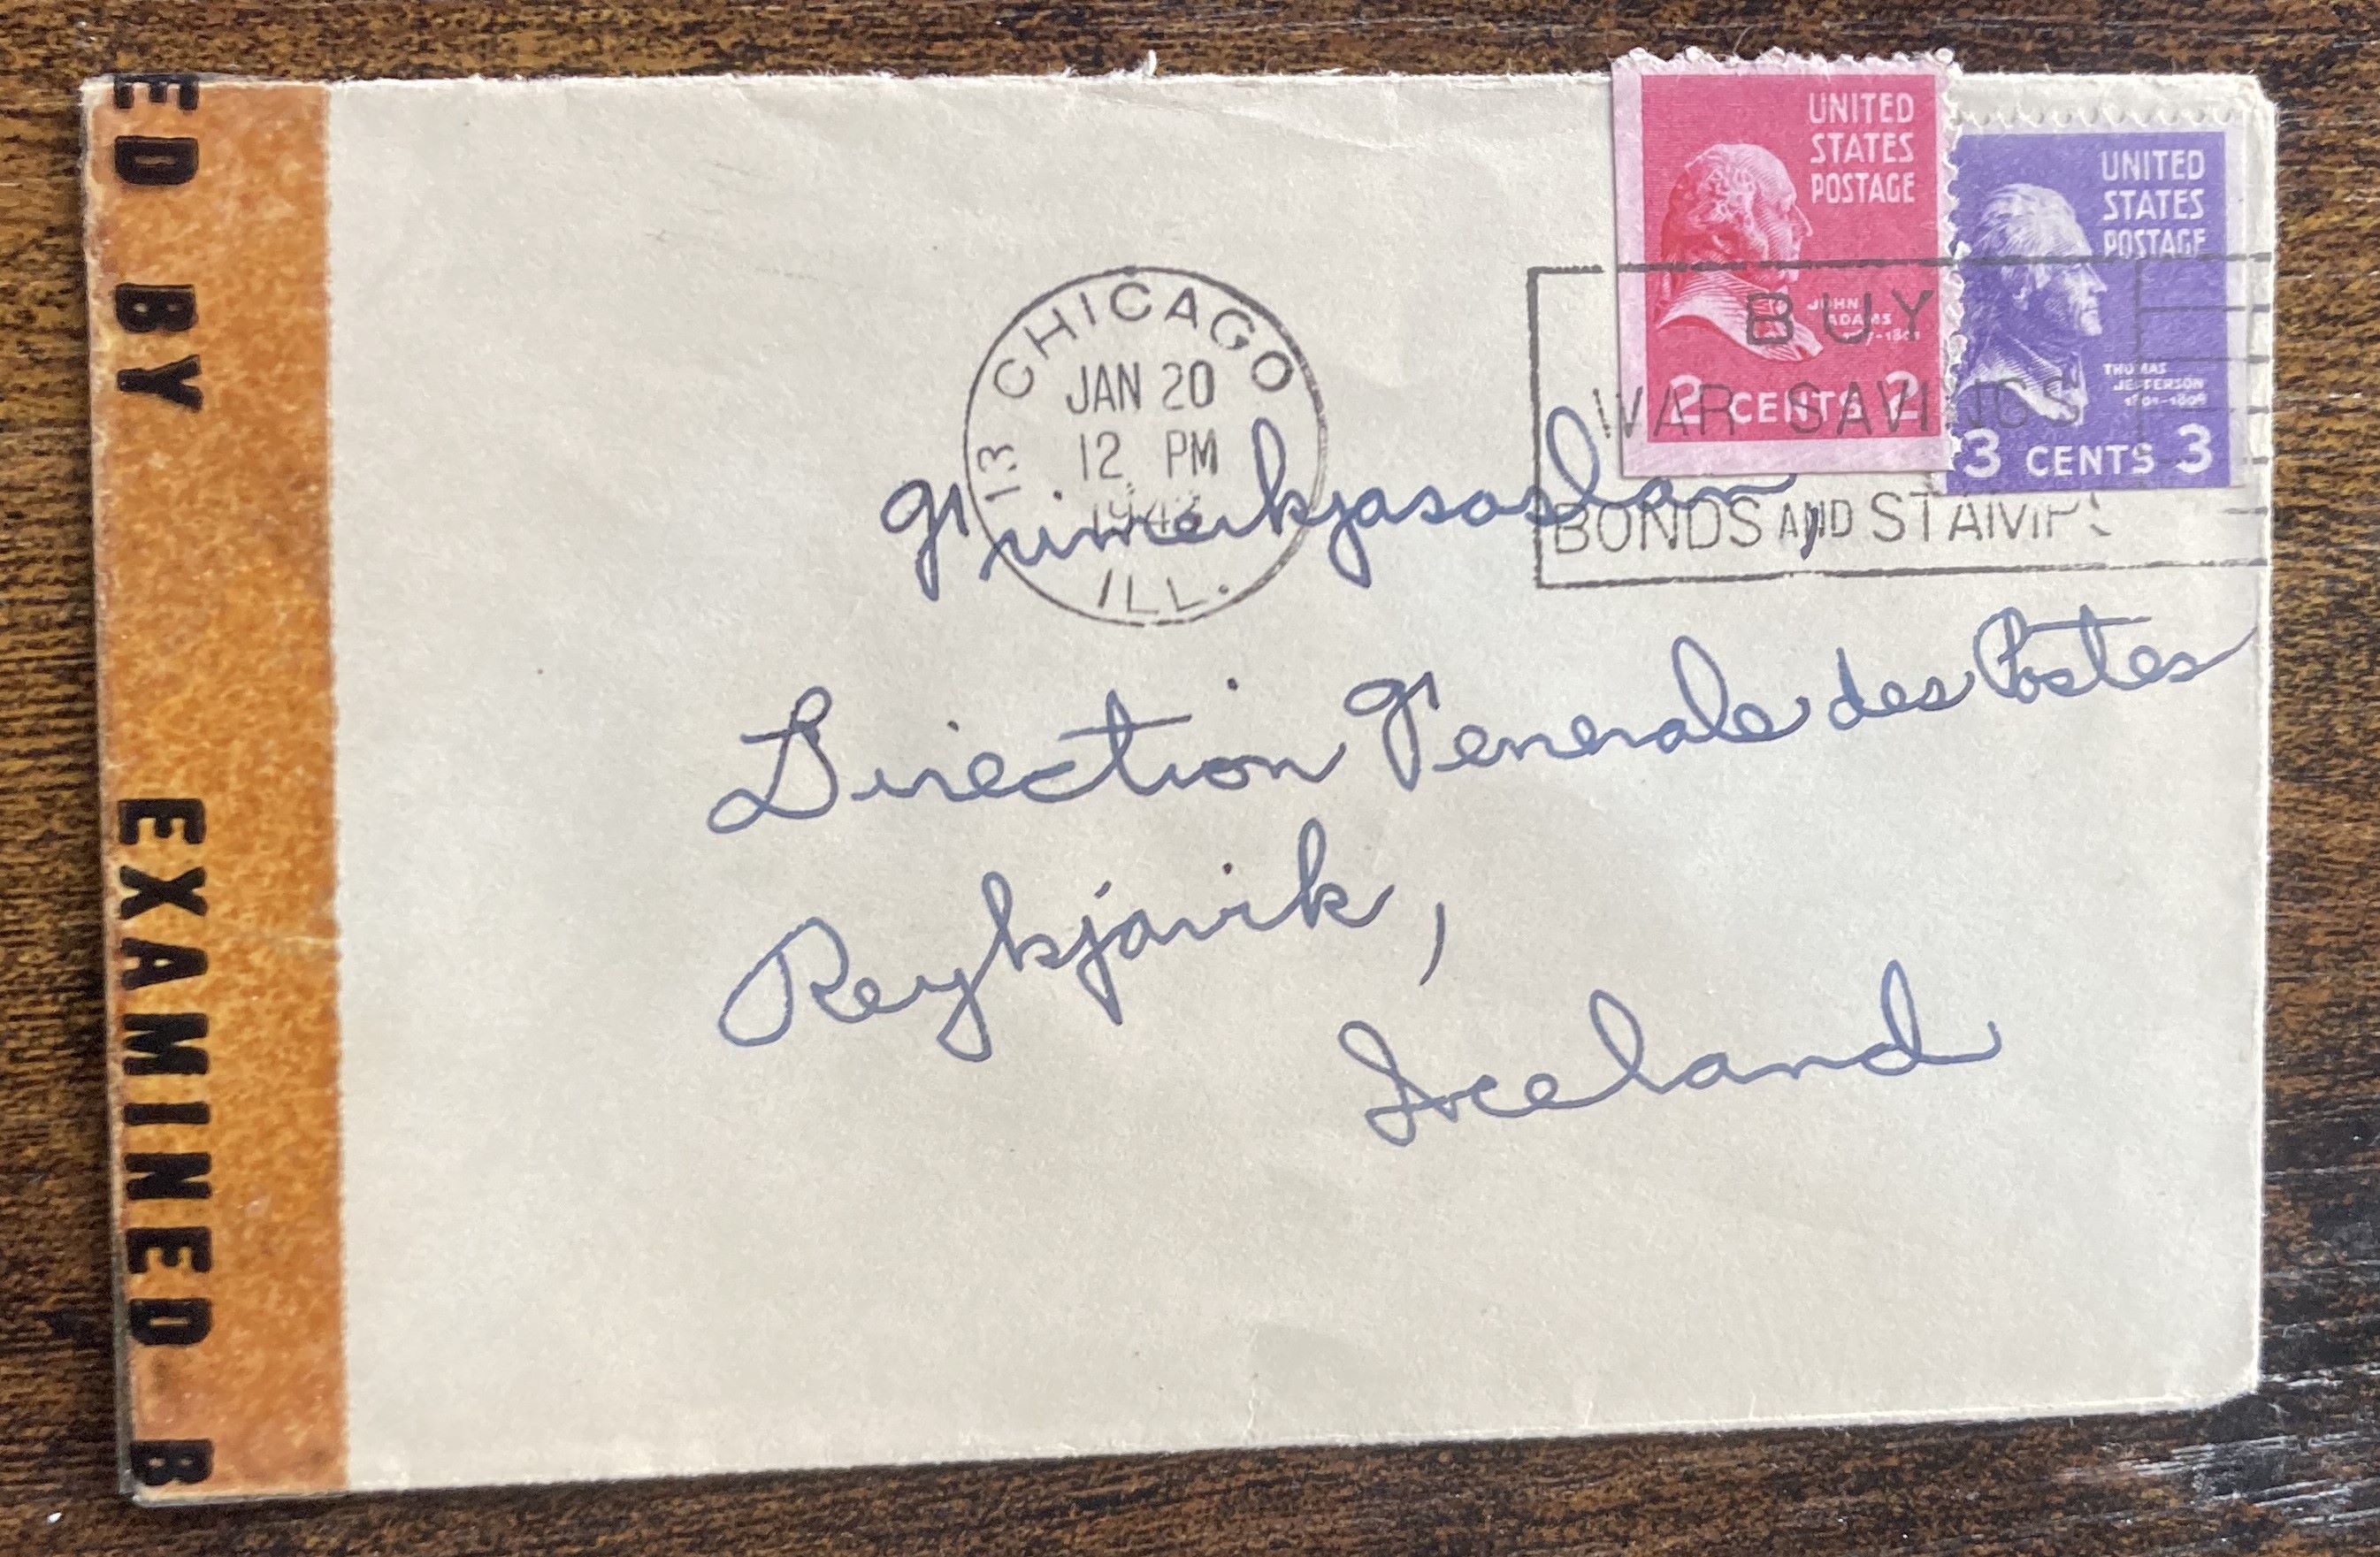 ED BY EXAMINED B
UNITED
STATES
POSTAGE
JOHN
ADAMS
2 CENTS 2
UNITED
STATES
POSTAGE
THOMAS
JEFFERSON
1801-1809
3 CENTS 3
13 CHICAGO
JAN 20
12 PM
ILL.
BUY
WAR SAVINGS
BONDS AND STAMPS
Direction Generale des Postes
Reykjavik,
Iceland